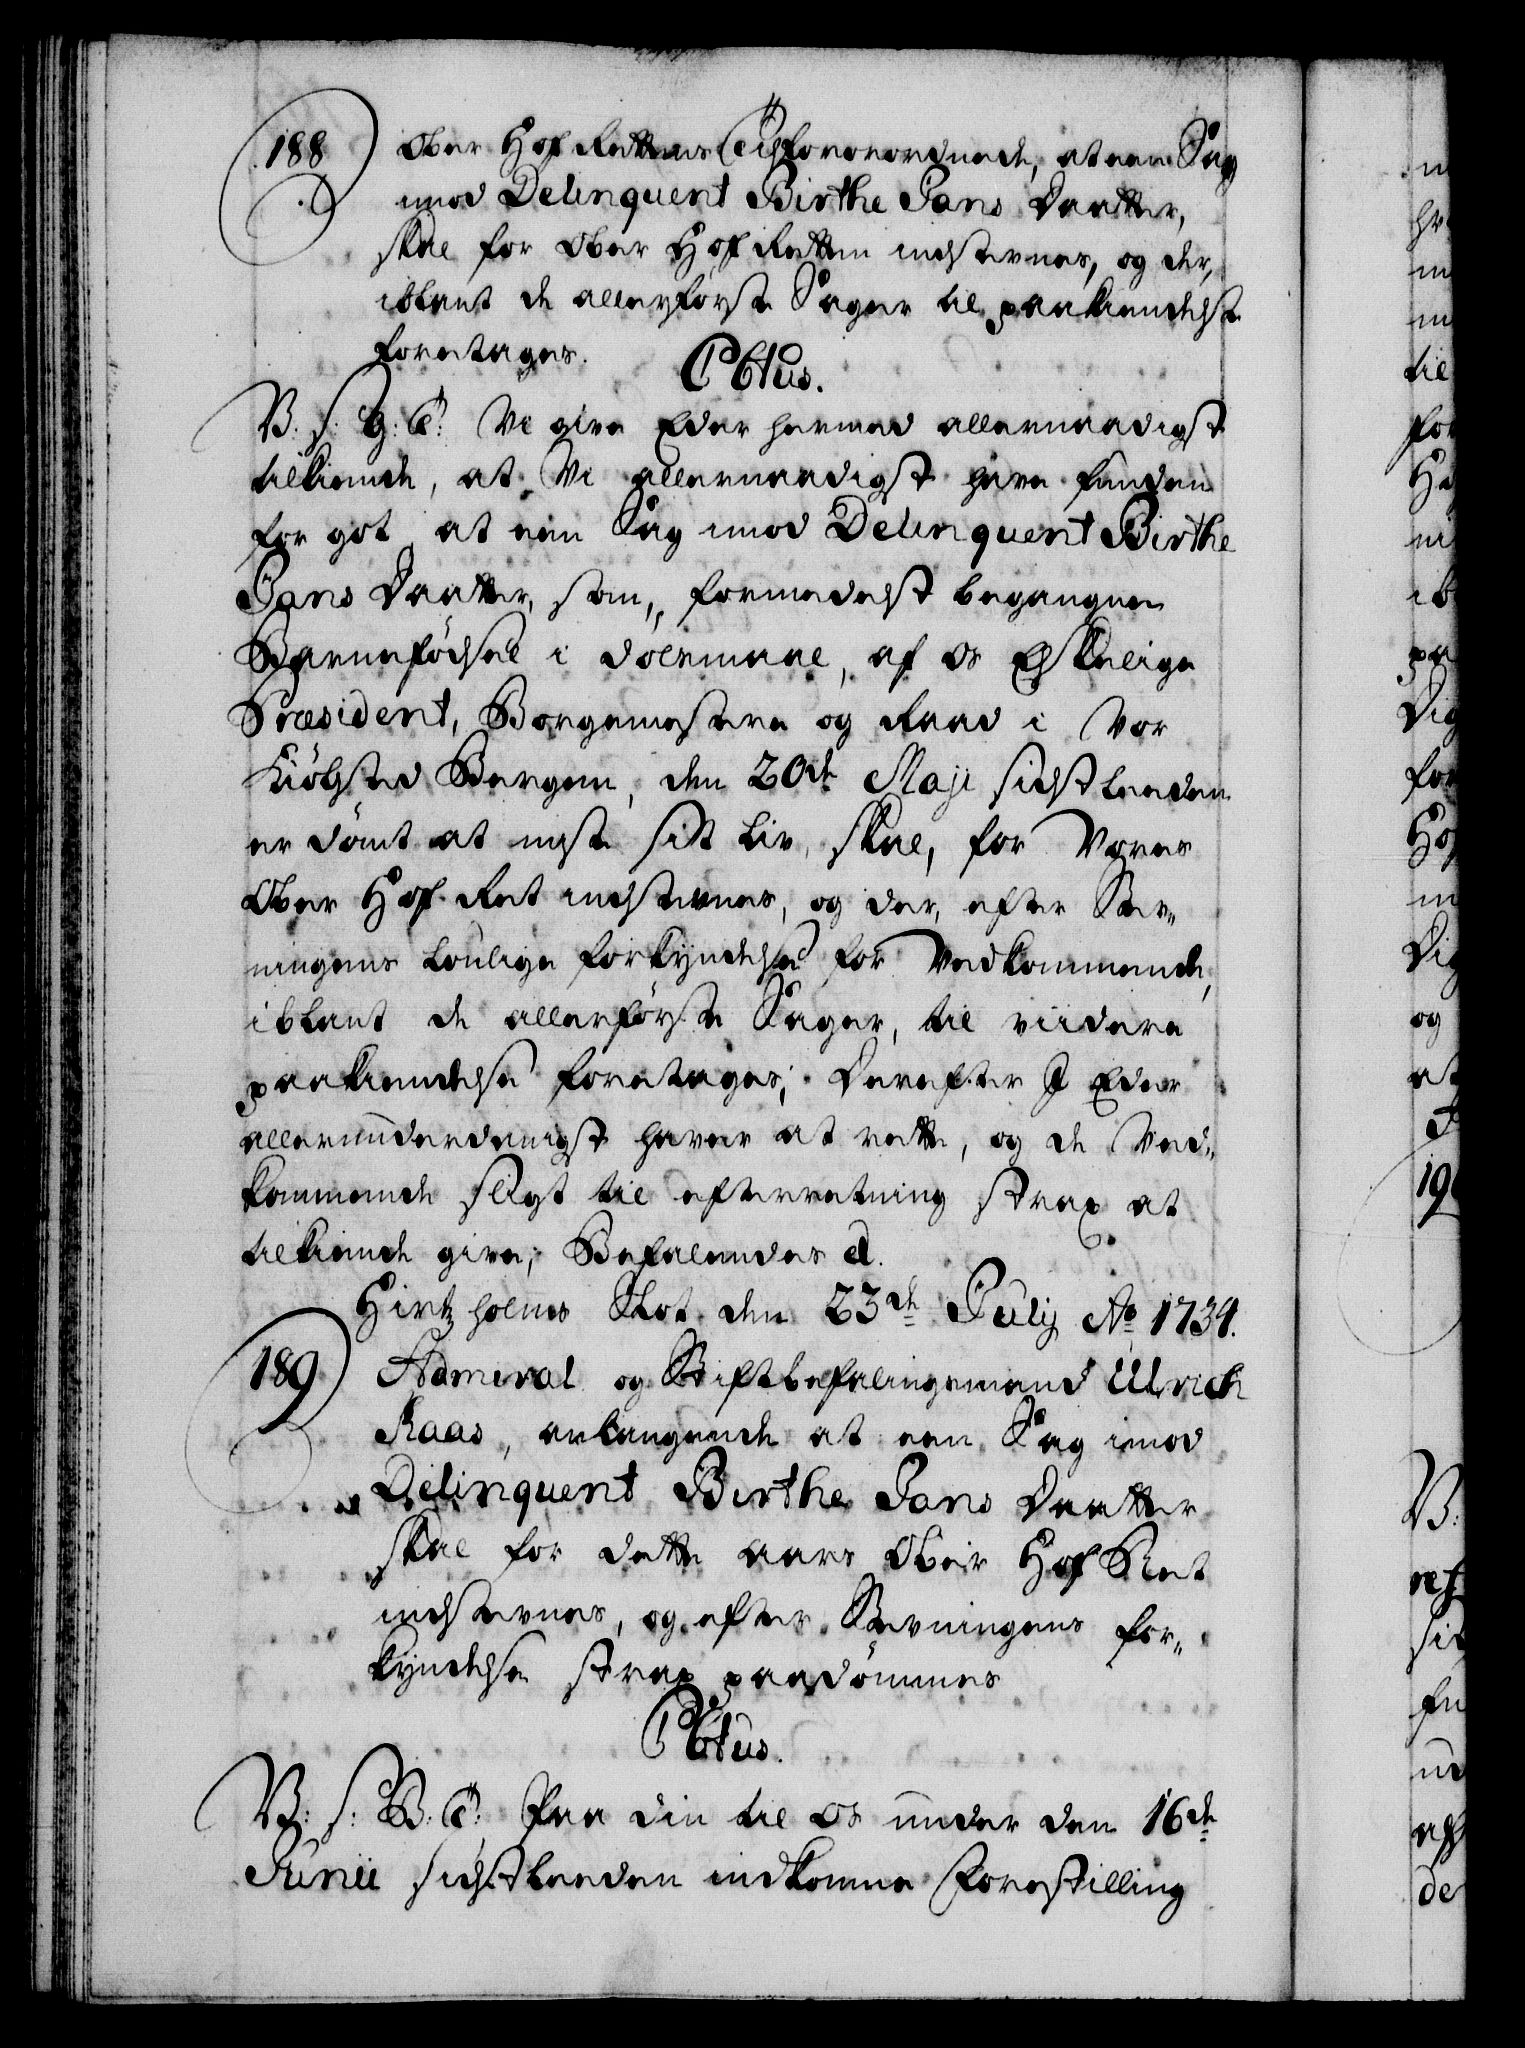 188
Ober Hof Rettens Tilforordnede, at een Sag
imod Delinquent Birthe Jans Daatter,
skal for Ober Hof Retten indstevnes, og der,
iblant de allerførste Sager til paakiendelse
foretages.
C VItus.
V. S. G. T. Vi give Eder hermed allernaadigst
tilkiende, at Vi allernaadigst have funden
for got, at een Sag imod Delinquent Birthe
Jans Daatter, som, formedelst begangne
Barnefødsel i dølsmaal, af Os Elskelige
Præsident, Borgemestere og Raad i Vor
Kiøbsted Bergen, den 20de Maji sidstleeden
er dömt at miste sit Liv, skal, for Vores
Ober Hof-Ret indstevnes, og der, efter Stev-
ningens loulige forkyndelse for Vedkommende,
iblant de allerførste Sager, til viidere
paakiendelse foretages; Derefter I Eder
allerunderdanigst haver at rette, og de Ved-
kommende sligt til efterretning strax at
tilkiende give; Befalendes etc.
Hirtzholms Slot den 23de Julij Ao 1734.
189
Admiral og Stiftbefalingsmand Ulrich
Kaas, anlangende at een Sag imod
Delinquent Birthe Jans Daatter
skal for dette aars Ober Hof Ret
indstevnes, og efter Stevningens for-
kyndelse strax paadömmes
V. S. G. T. Paa din til Os under den 16de
Junii sidstleeden indkomne Forestilling